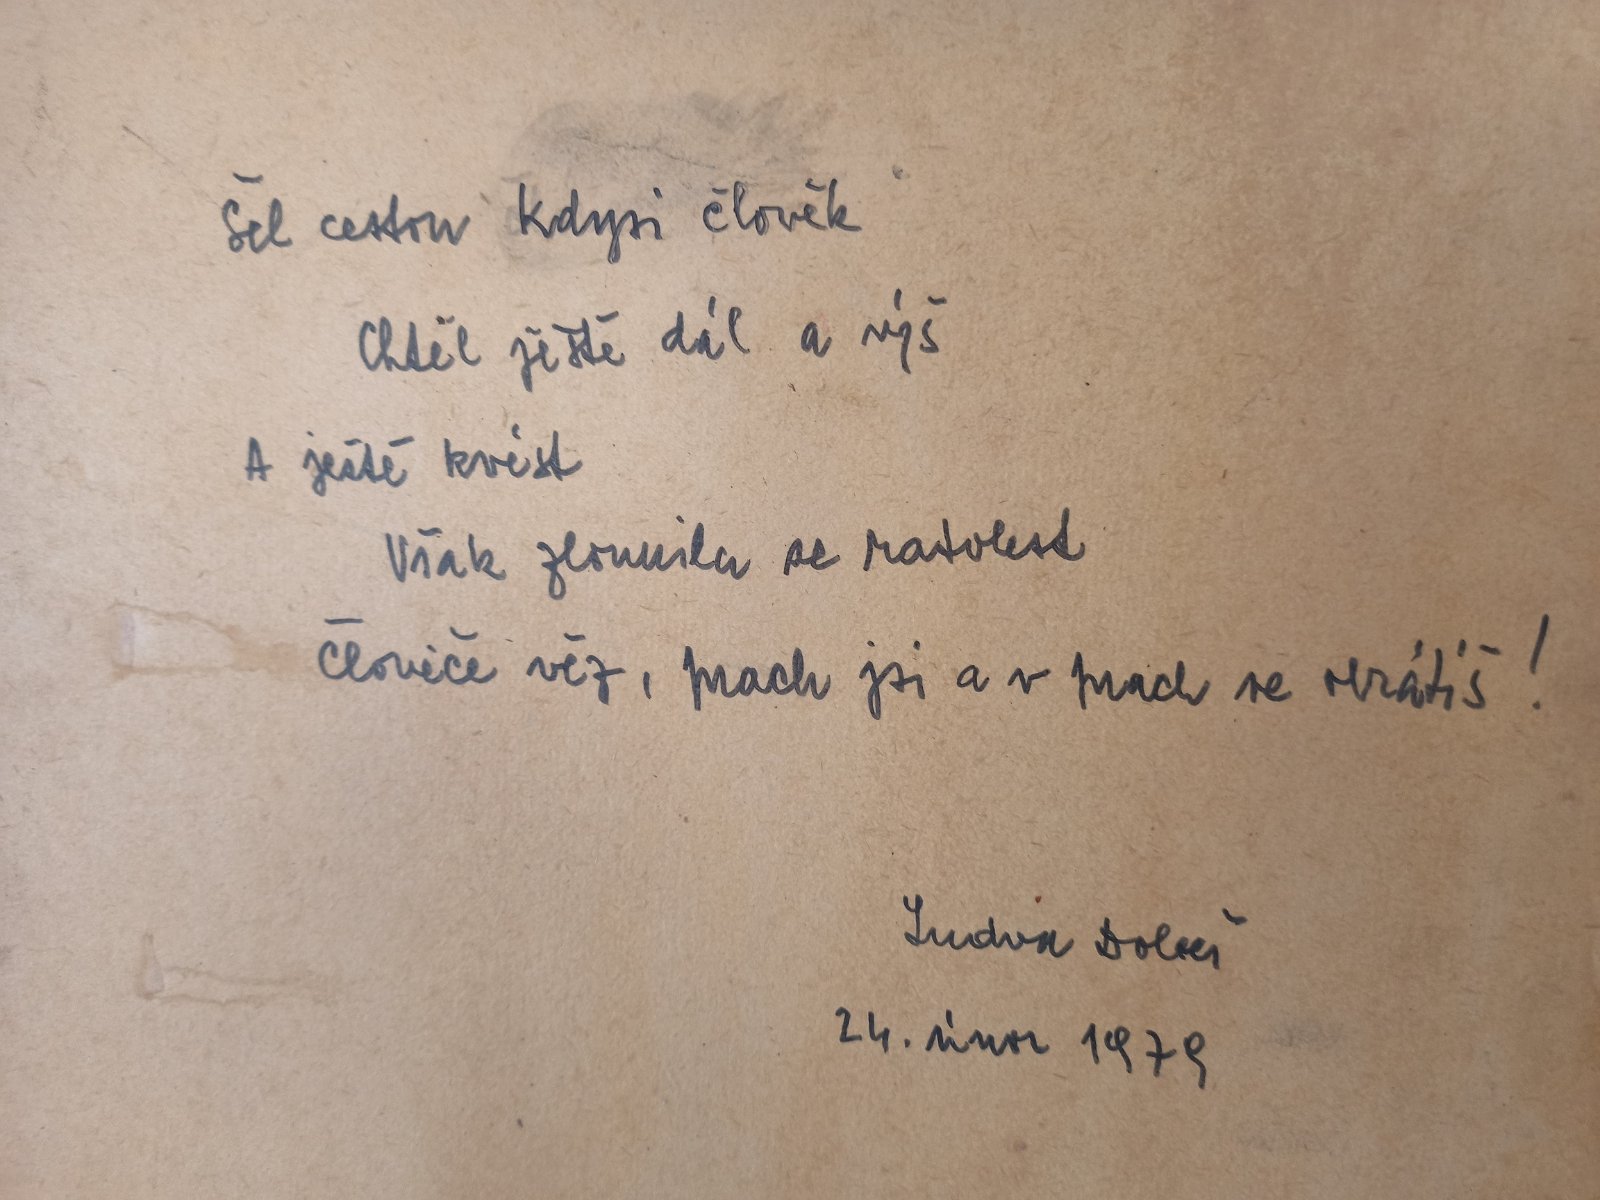 Šel cestou kdysi člověk
Chtěl ještě dál a výš
A ještě kvést
Však zlomila se ratolest
Člověče věz, prach jsi a v prach se obrátíš!
Ludva
24. únor 1979